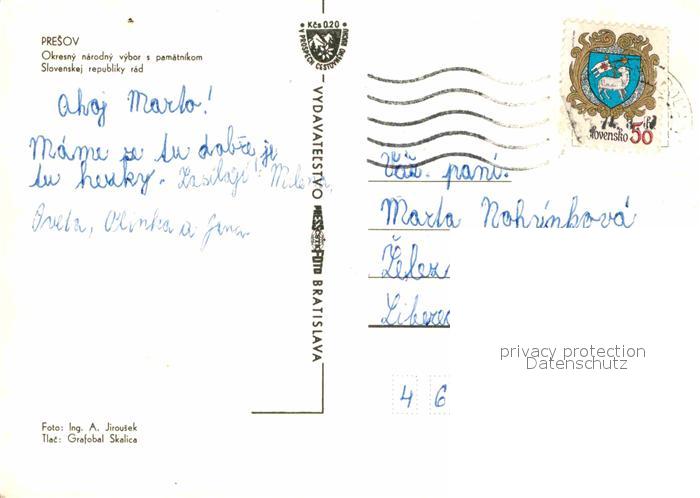 PREŠOV
Okresný národný výbor s pamätníkom
Slovenskej republiky rád
Ahoj Marto!
Máme se tu dobře je
tu hezky. Zasílají Milena,
Iveta, Olinka a Jana
Foto: Ing. A. Jiroušek
Tlač: Grafobal Skalica
Kčs 0.20
V PROSPECH CESTOVNÉHO RUCHU
VYDAVATEĽSTVO PRESSFOTO BRATISLAVA
slovensko 50
Váž. paní.
Marta Nohýnková
Želez
Liberec
privacy protection
Datenschutz
4 6